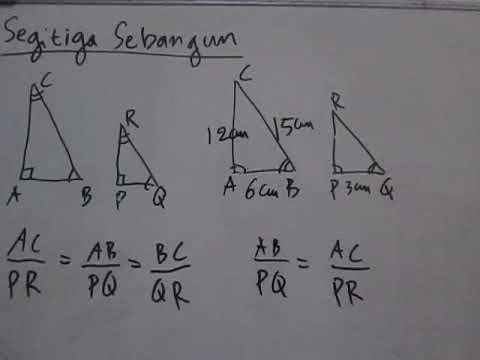 Segitiga Sebangun
C
R
A
B
P
Q
C
R
12cm
15cm
A
6cm
B
P
3cm
Q
AC/PR = AB/PQ = BC/QR
AB/PQ = AC/PR